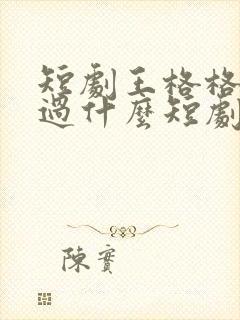 短劇王格格
過什麼短劇
陳實